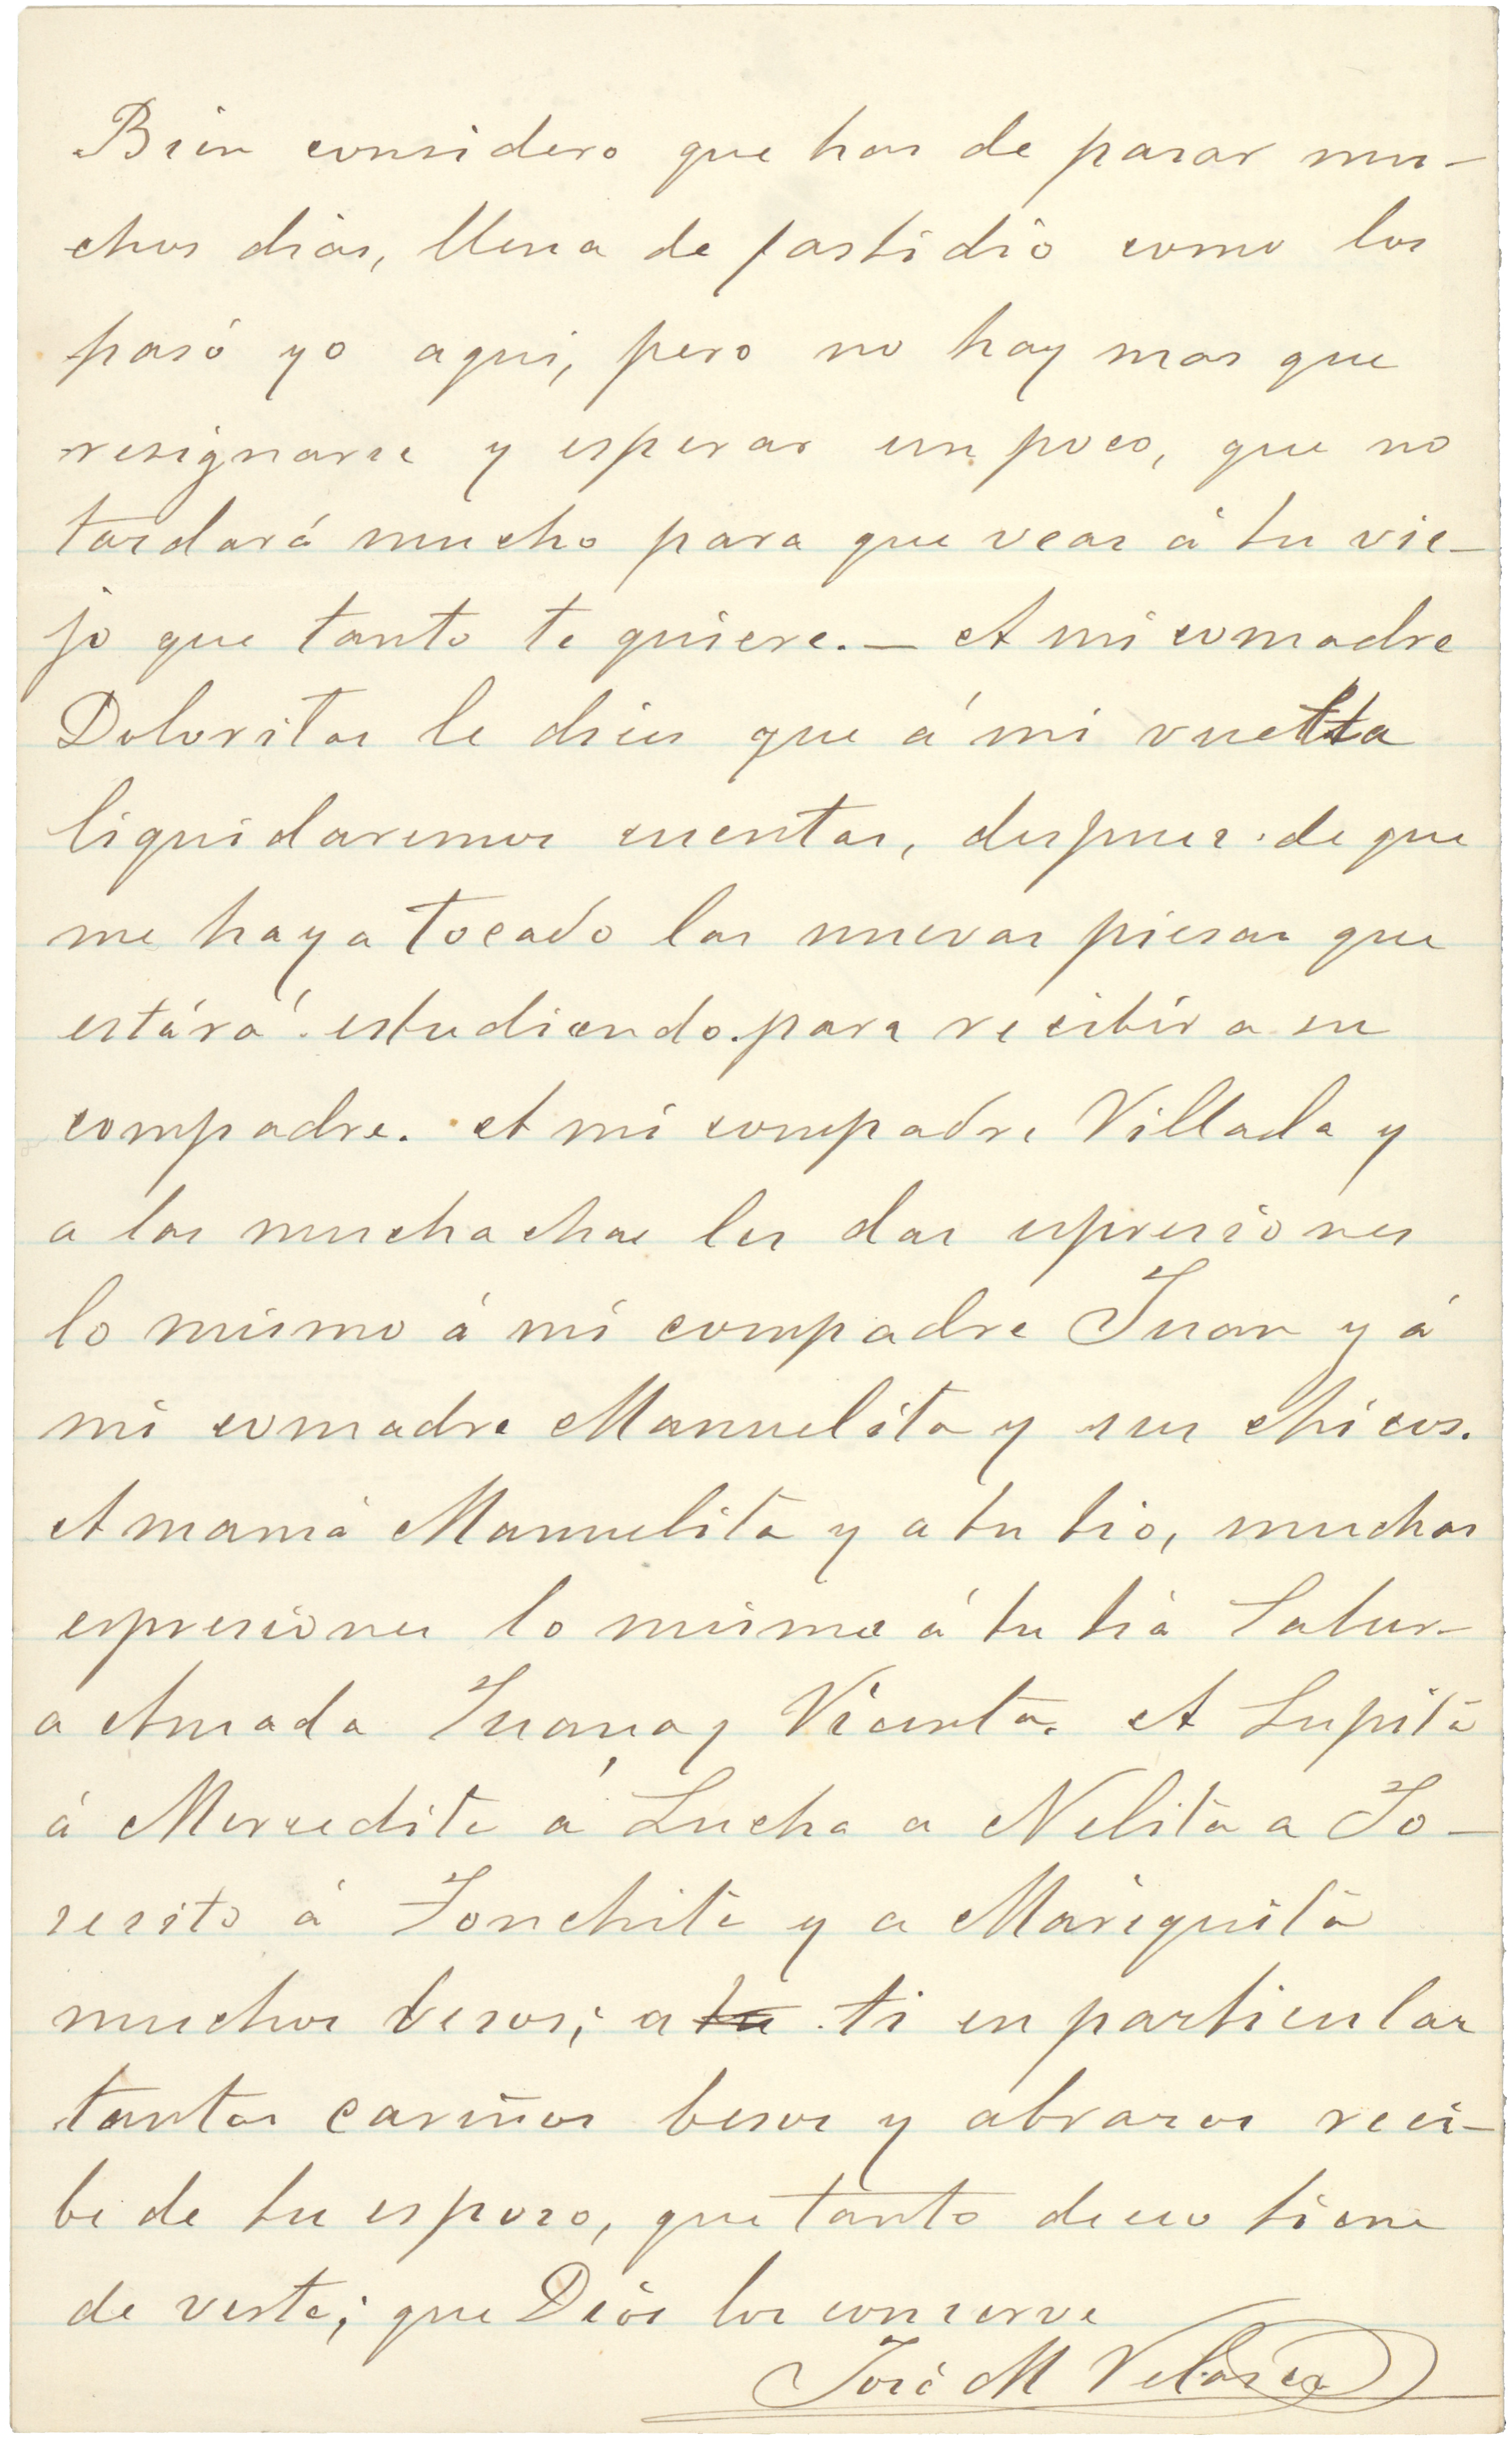 Bien considero que has de pasar mu-
chos dias, llena de fastidio como los
pasó yo aqui, pero no hay mas que
resignarse y esperar un poco, que no
tardará mucho para que veas á tu vie-
jo que tanto te quiere.— A mi comadre
Doloritas le dices que á mi vuelta
liquidaremos cuentas, despues de que
me haya tocado las nuevas piesas que
estárá estudiando para recibir a su
compadre. A mi compadre Villada y
a las muchachas les das espresiones
lo mismo á mi compadre Juan y á
mi comadre Manuelita y sus chicos.
A mamá Manuelita y a tu tio, muchas
espresiones lo mismo á tu tia Satur-
a Amada Juana, Vicenta. A Lupita
á Mercedita a Lucha a Nelita a Jo-
sesito á Conchita y a Mariquita
muchos besos; a tu ti en particular
tantos cariños besos y abrazos reci-
be de tu esposo, que tanto deseo tiene
de verte; que Dios los conserve
José M Velasco